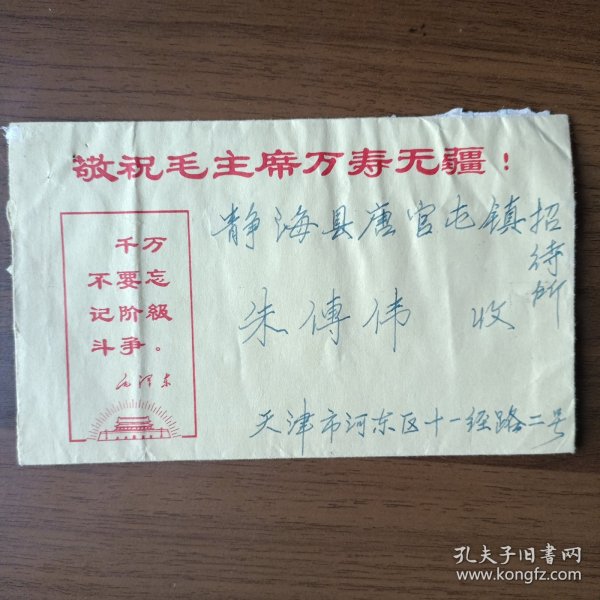 敬祝毛主席万寿无疆！
千万
不要忘
记阶級
斗争。
毛泽东
静海县唐官屯镇招待所
朱傅伟 收
天津市河东区十一经路二号
孔夫子旧书网
www.kongfz.com